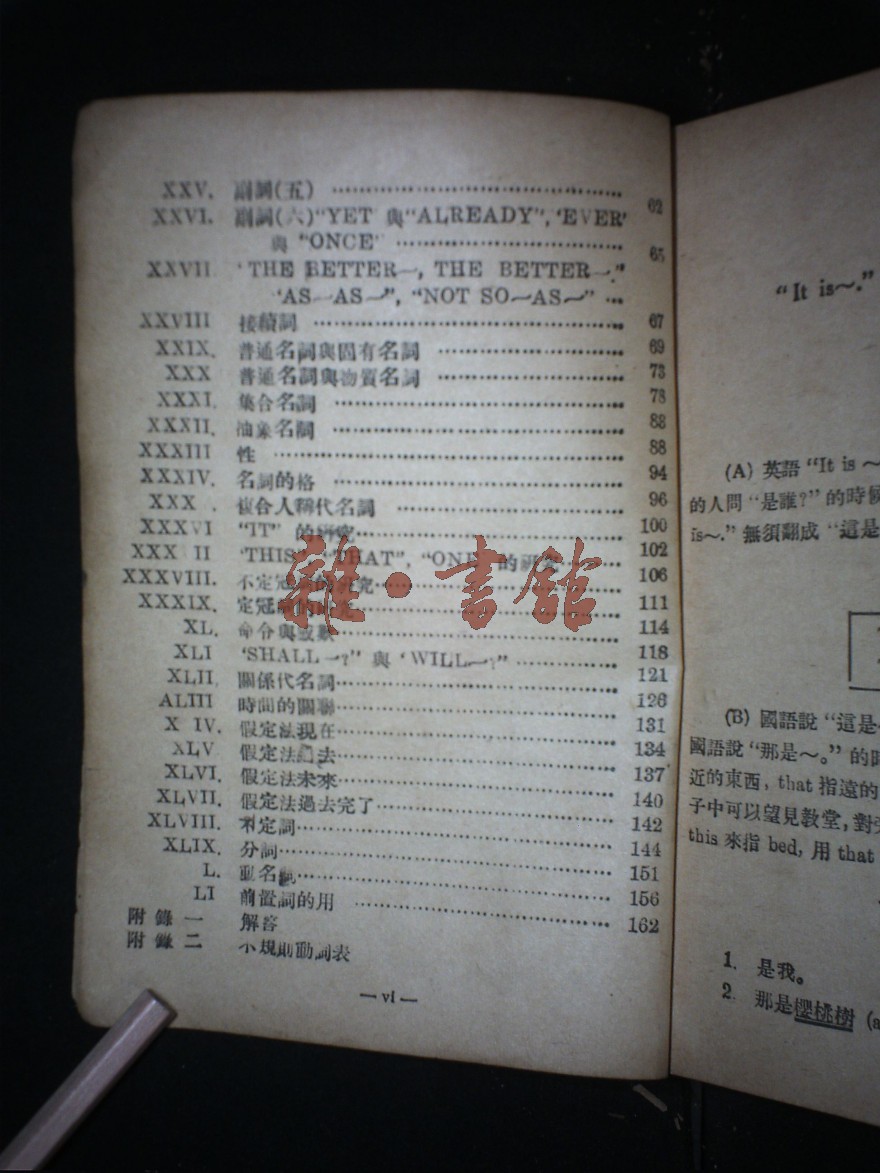 XXV. 副詞(五) 62
XXVI. 副詞(六)"YET 與"ALREADY", 'EVER'
與 "ONCE' 65
XXVII 'THE BETTER~, THE BETTER~."
'AS~AS~", "NOT SO~AS~"
XXVIII 接續詞 67
XXIX. 普通名詞與固有名詞 69
XXX 普通名詞與物質名詞 73
XXXI. 集合名詞 78
XXXII. 抽象名詞 88
XXXIII 性 88
XXXIV. 名詞的格 94
XXX . 複合人稱代名詞 96
XXXVI "IT" 的研究 100
XXX II 'THIS" "THAT", "ONE" 的研究 102
XXXVIII. 不定冠 的研究 106
XXXIX. 定冠 的 究 111
XL. 命令與感歎 114
XLI 'SHALL~?" 與 'WILL~?" 118
XLII. 關係代名詞 121
ALIII 時間的關聯 126
X IV. 假定法現在 131
XLV. 假定法過去 134
XLVI. 假定法未來 137
XLVII. 假定法過去完了 140
XLVIII. 不定詞 142
XLIX. 分詞 144
L. 動名詞 151
LI 前置詞的用 156
附錄一 解答 162
附錄二 不規則動詞表
— vi —
雜·書館
"It is~."
(A) 英語 "It is ~
的人問 "是誰?" 的時候
is~." 無須翻成 "這是
(B) 國語說 "這是
國語說 "那是~。" 的時
近的東西, that 指遠的
子中可以望見教堂, 對旁
this 來指 bed, 用 that
1. 是我。
2. 那是櫻桃樹 (a